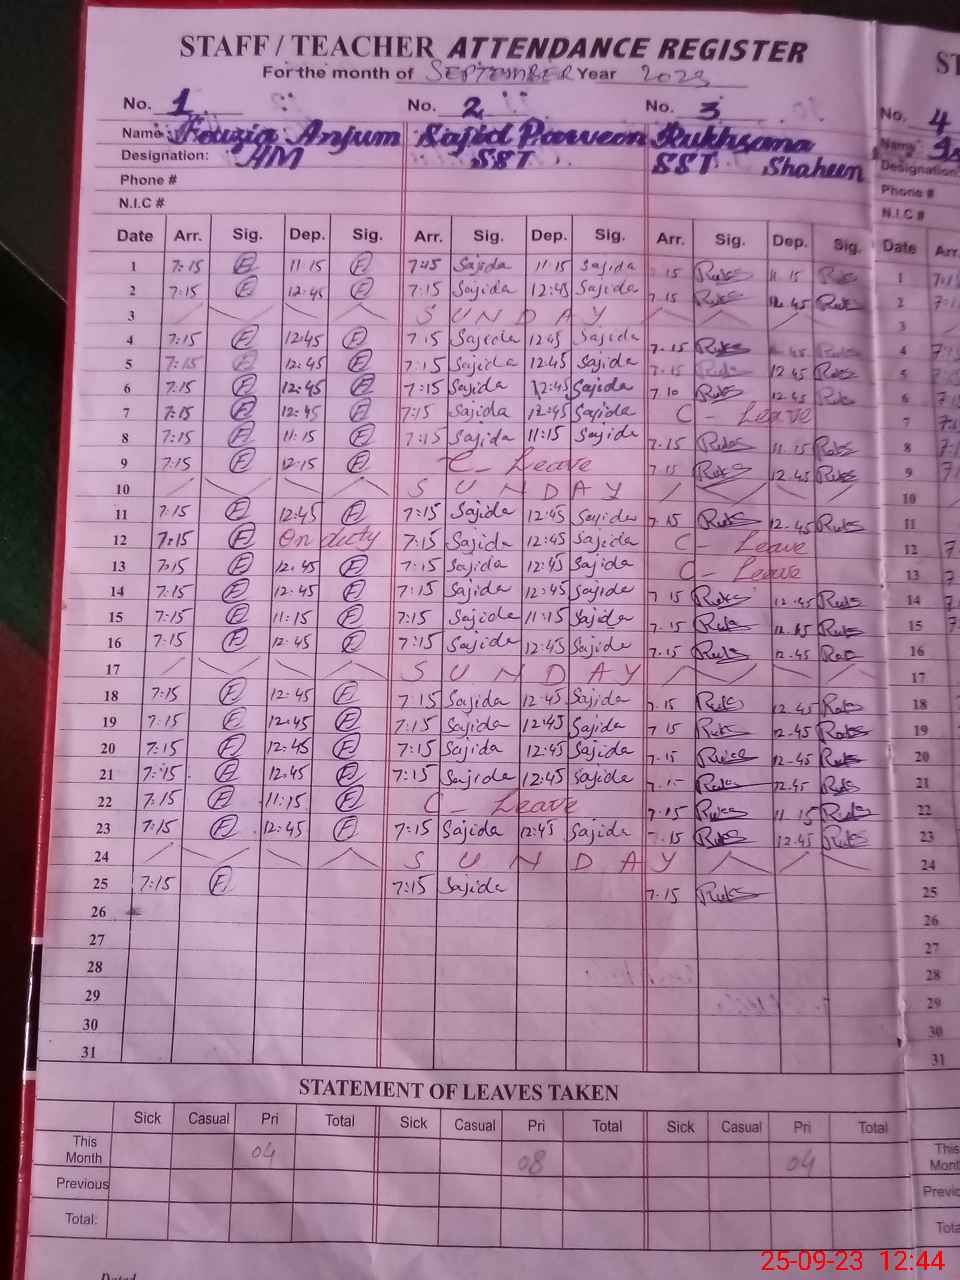 STAFF / TEACHER ATTENDANCE REGISTER
For the month of SEPTEMBER Year 2023
No. 1 No. 2 No. 3 No. 4
Name Fouzia Anjum Sajid Parveen Rukhsana Name
Designation: HM SST SST Shaheen Designation
Phone # Phone #
N.I.C # N.I.C #
Date Arr. Sig. Dep. Sig. Arr. Sig. Dep. Sig. Arr. Sig. Dep. Sig. Date Arr
1 7:15 F 11:15 F 7:15 Sajida 11:15 Sajida 15 Ruks 11.15 Ruks 1
2 7:15 F 12:45 F 7:15 Sajida 12:45 Sajida 7.15 Ruks 12.45 Ruks 2
3 SUNDAY 3
4 7:15 F 12:45 F 7:15 Sajida 12:45 Sajida 7.15 Ruks 45 Ruks 4
5 7:15 F 12:45 F 7:15 Sajida 12:45 Sajida 7.15 Ruks 12.45 Ruks 5
6 7:15 F 12:45 F 7:15 Sajida 12:45 Sajida 7.10 Ruks 12.45 Ruks 6
7 7:15 F 12:45 F 7:15 Sajida 12:45 Sajida C - Leave 7
8 7:15 F 11:15 F 7:15 Sajida 11:15 Sajida 7.15 Ruks 11.15 Ruks 8
9 7:15 F 12:15 F C - Leave 7.15 Ruks 12.45 Ruks 9
10 SUNDAY 10
11 7:15 F 12:45 F 7:15 Sajida 12:45 Sajida 7.15 Ruks 12.45 Ruks 11
12 7:15 F On duty 7:15 Sajida 12:45 Sajida C - Leave 12
13 7:15 F 12:45 F 7:15 Sajida 12:45 Sajida C - Leave 13
14 7:15 F 12:45 F 7:15 Sajida 12:45 Sajida 7.15 Ruks 12.45 Ruks 14
15 7:15 F 11:15 F 7:15 Sajida 11:15 Sajida 7.15 Ruks Ruks 15
16 7:15 F 12:45 F 7:15 Sajida 12:45 Sajida 7.15 Ruks 12.45 Ruks 16
17 SUNDAY 17
18 7:15 F 12:45 F 7:15 Sajida 12:45 Sajida 7.15 Ruks 12.45 Ruks 18
19 7:15 F 12:45 F 7:15 Sajida 12:45 Sajida 7.15 Ruks 12.45 Ruks 19
20 7:15 F 12:45 F 7:15 Sajida 12:45 Sajida 7.15 Ruks 12.45 Ruks 20
21 7:15 F 12:45 F 7:15 Sajida 12:45 Sajida Ruks 12.45 Ruks 21
22 7:15 F 11:15 F C - Leave 7.15 Ruks 11.15 Ruks 22
23 7:15 F 12:45 F 7:15 Sajida 12:45 Sajida 15 Ruks 12.45 Ruks 23
24 SUNDAY 24
25 7:15 F 7:15 Sajida 7.15 Ruks 25
26 26
27 27
28 28
29 29
30 30
31 31
STATEMENT OF LEAVES TAKEN
Sick Casual Pri Total Sick Casual Pri Total Sick Casual Pri Total
This Month 04 08 04 This Mont
Previous Previo
Total: Tota
25-09-23 12:44